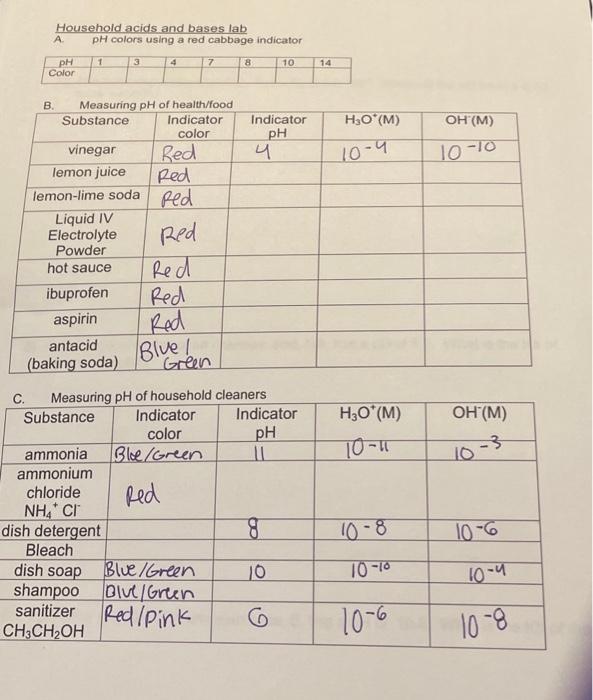 Household acids and bases lab
A. pH colors using a red cabbage indicator
pH 1 3 4 7 8 10 14
Color
B. Measuring pH of health/food
Substance Indicator color Indicator pH H₃O⁺(M) OH⁻(M)
vinegar Red 4 10-4 10-10
lemon juice Red
lemon-lime soda Red
Liquid IV Electrolyte Powder Red
hot sauce Red
ibuprofen Red
aspirin Red
antacid (baking soda) Blue/Green
C. Measuring pH of household cleaners
Substance Indicator color Indicator pH H₃O⁺(M) OH⁻(M)
ammonia Blue/Green 11 10-11 10-3
ammonium chloride NH₄⁺ Cl⁻ Red
dish detergent 8 10-8 10-6
Bleach
dish soap Blue/Green 10 10-10 10-4
shampoo Blue/Green
sanitizer CH₃CH₂OH Red/Pink 6 10-6 10-8